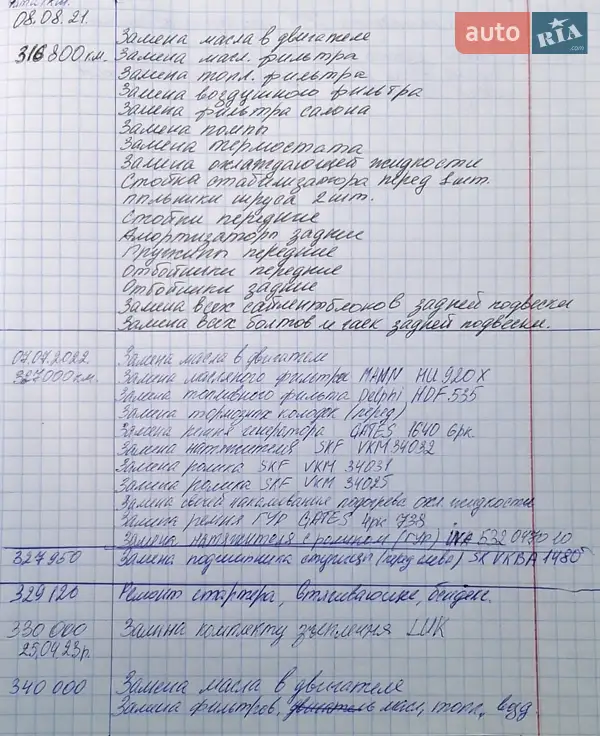 Дата/км.
08.08.21.
auto RIA.com
Замена масла в двигателе
316 800 км. Замена масл. фильтра
Замена топл. фильтра
Замена воздушного фильтра
Замена фильтра салона
Замена помпы
Замена термостата
Замена охлаждающей жидкости
Стойка стабилизатора перед 1шт.
пыльники шруса 2шт.
Стойки передние
Амортизаторы задние
Пружины передние
Отбойники передние
Отбойники задние
Замена всех сайлентблоков задней подвески
Замена всех болтов и гаек задней подвески.
07.07.2022 Замена масла в двигателе
327000 км. Замена масляного фильтра MANN HU 920 X
Замена топливного фильта Delphi HDF 535
Замена тормозных колодок (перед)
Замена ремня генератора GATES 1640 6рк.
Замена натяжителя SKF VKM 34032
Замена ролика SKF VKM 34031
Замена ролика SKF VKM 34025
Замена свечей накаливания подогрева охл. жидкости
Замена ремня ГУР GATES 4рк 738
Замена натяжителя с роликом (ГУР) INA 532 0470 10
327950 Замена подшипника ступицы (перед лево) SKF VKBA 1480
329120 Ремонт стартера, Втягивающие, бендикс.
330 000 Заміна комплекту зчеплення LUK
25.04.23р.
340 000 Замена масла в двигателе
Замена фильтров, масл, топл, возд.